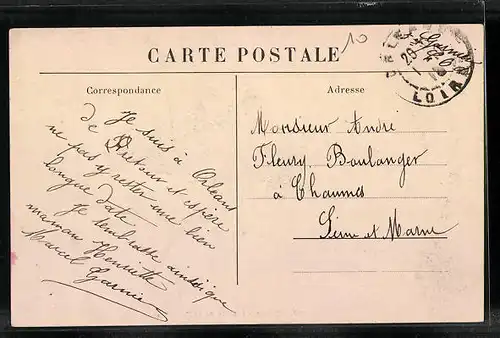 10
CARTE POSTALE
Correspondance
Je suis à Orléans
de Retour et espère
ne pas y rester une bien
longue date
Je t'embrasse ainsi que
maman Henriette
Marcel Garnier
Adresse
Monsieur André
Fleury Boulanger
à Chaumes
Seine et Marne
LOIRET